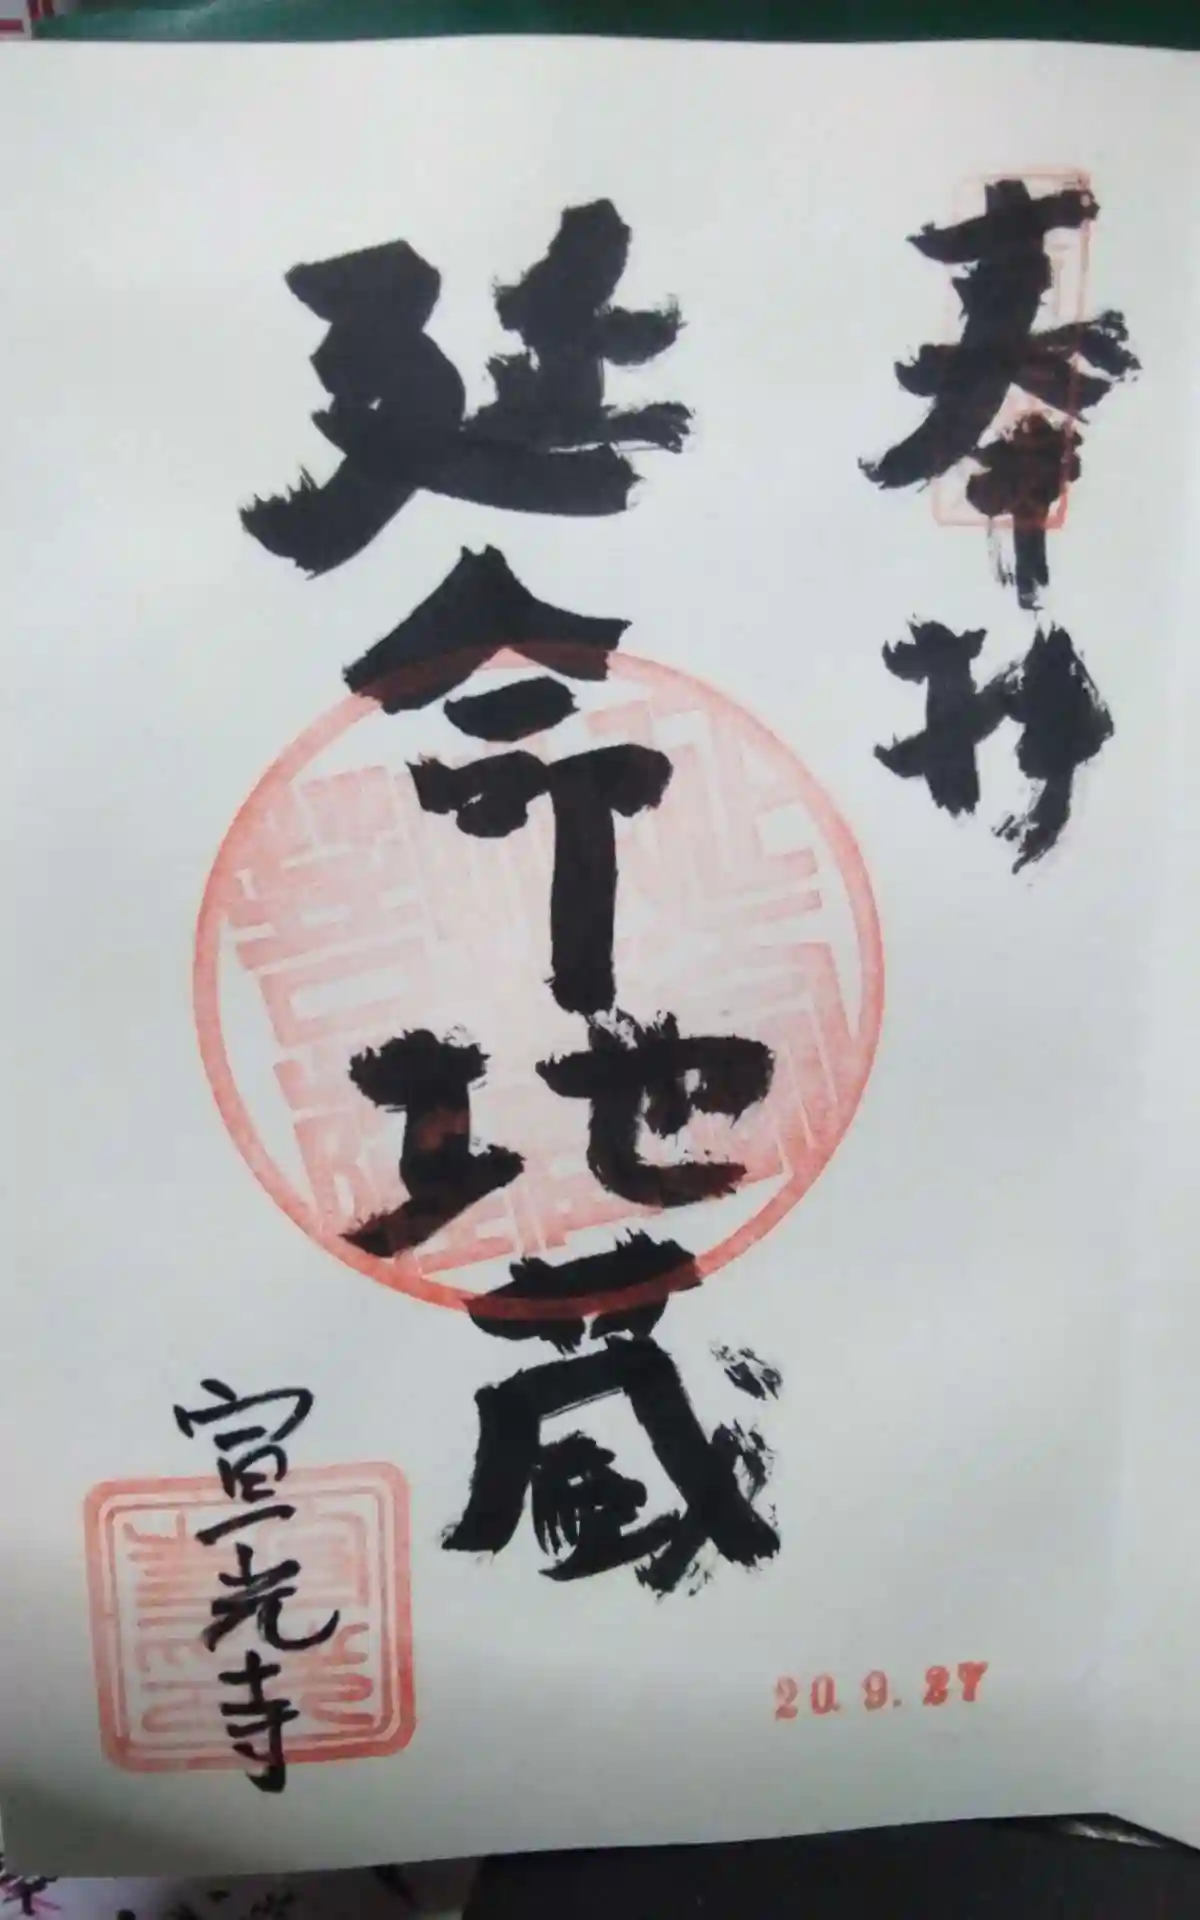 奉拝
延命地蔵
宣光寺
20.9.27